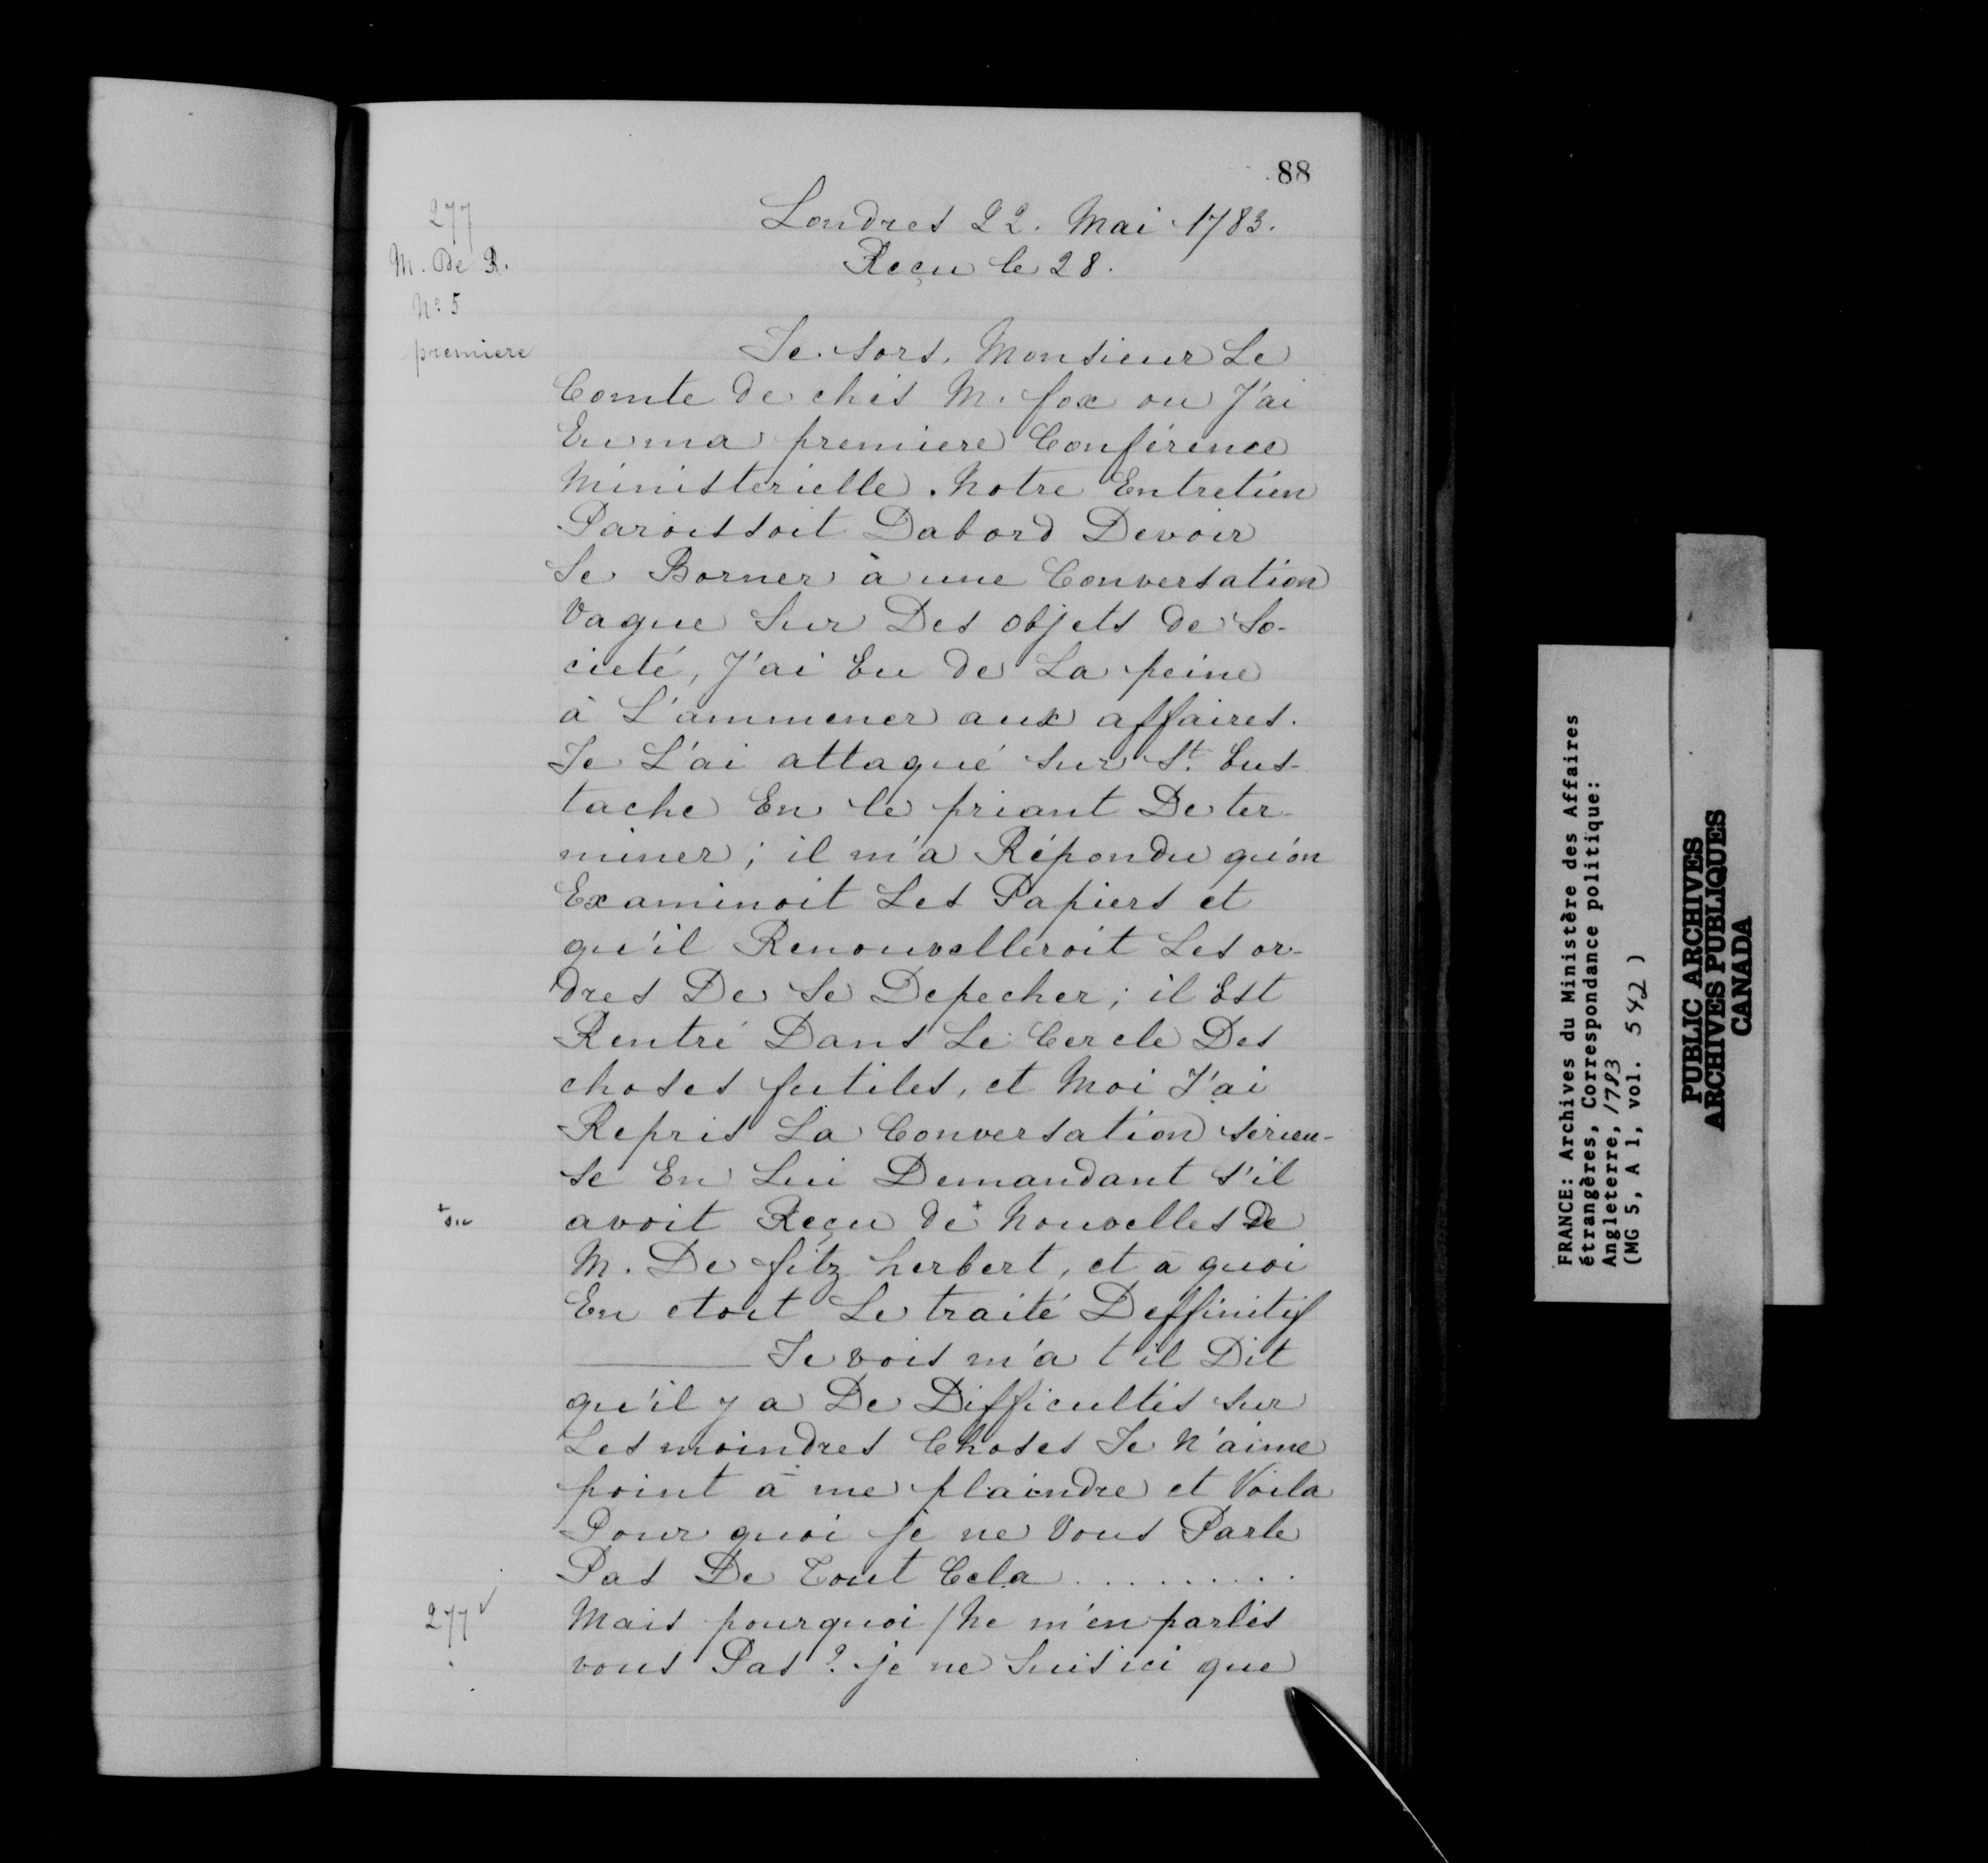 88
277
Londres 22. Mai 1783.
M. De R.
Reçu le 28.
No 5
premiere
Je sors, Monsieur Le
Comte de chés M. fox ou J'ai
Eu ma premiere Conférence
Ministerielle. Notre Entretien
Paroissoit Dabord Devoir
Se Borner à une Conversation
Vague Sur Des objets de So-
cieté, J'ai Eu de La peine
à L'ammener aux affaires.
Je L'ai attaqué sur St. Eus-
tache En le priant De ter-
miner; il m'a Répondu qu'on
Examinoit Les Papiers et
qu'il Renouvelleroit Les or-
dres De Se Depecher; il Est
Rentré Dans Le Cercle Des
choses futiles, et Moi J'ai
Repris La Conversation sérieu-
se En Lui Demandant s'il
+ sic
avoit Reçu de+ Nouvelles De
M. De fitz herbert, et à quoi
En etoit Le traité Deffinitif
Je vois m'a t'il Dit
qu'il y a De Difficultés sur
Les moindres Choses Je N'aime
point à me plaindre et Voila
Pour quoi je ne Vous Parle
Pas De Tout Cela . . . . . . . . .
277 v
Mais pourquoi / Ne m'en parlés
vous Pas? je ne Suis ici que
FRANCE: Archives du Ministère des Affaires
étrangères, Correspondance politique:
Angleterre, 1783
(MG 5, A 1, vol. 542 )
PUBLIC ARCHIVES
ARCHIVES PUBLIQUES
CANADA